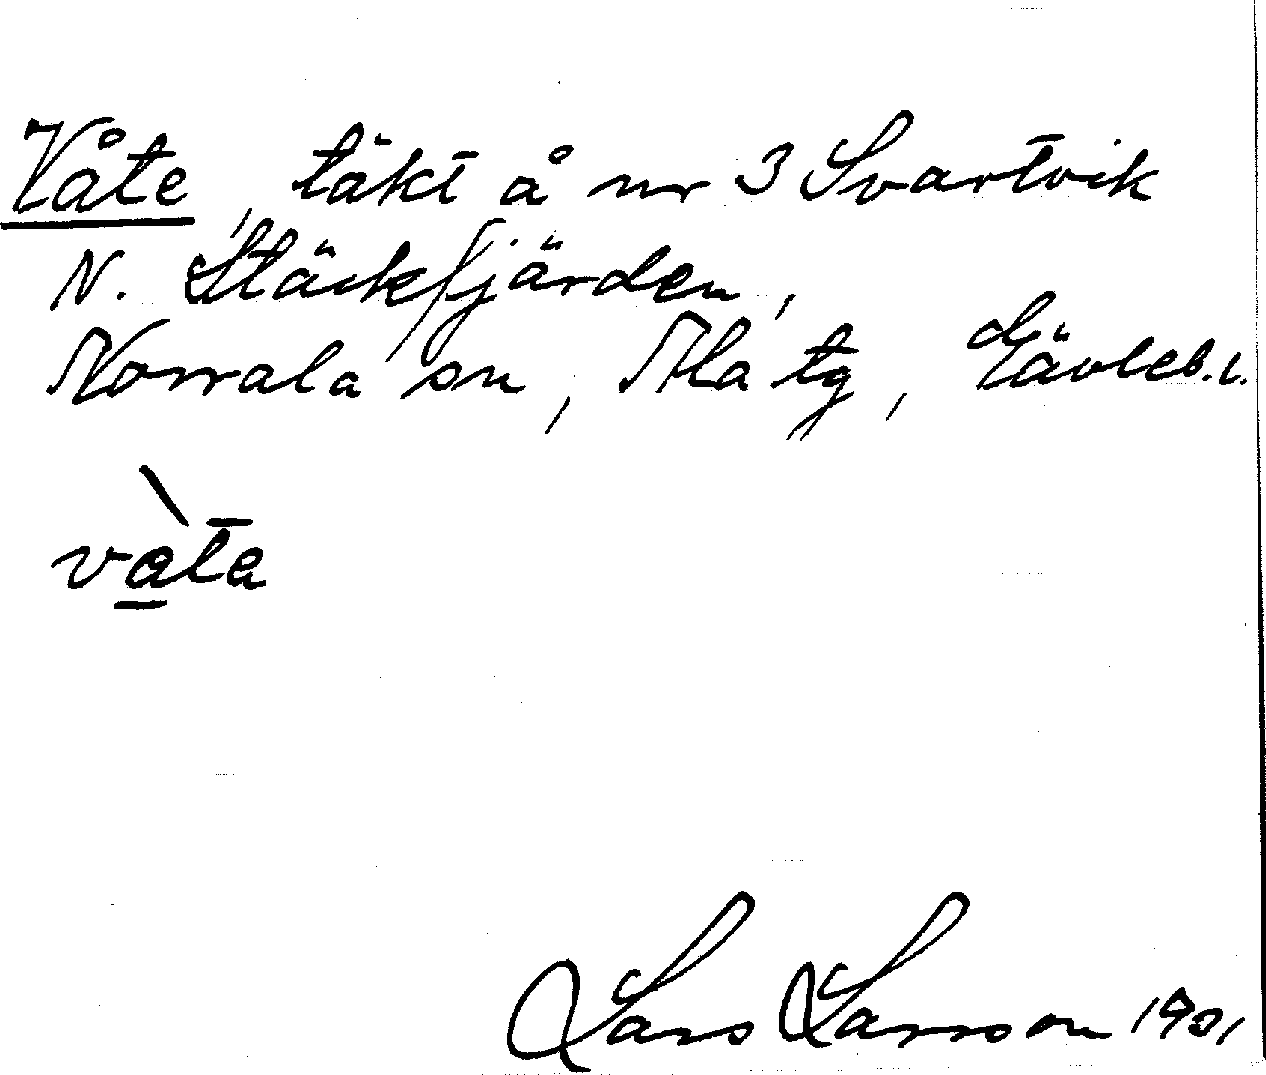 Våte, täkt å nr 3 Svartvik
N. Stäckfjärden,
Norrala sn, Ala tg, Gävleb.l.
vàta
Lars Larsson 1901